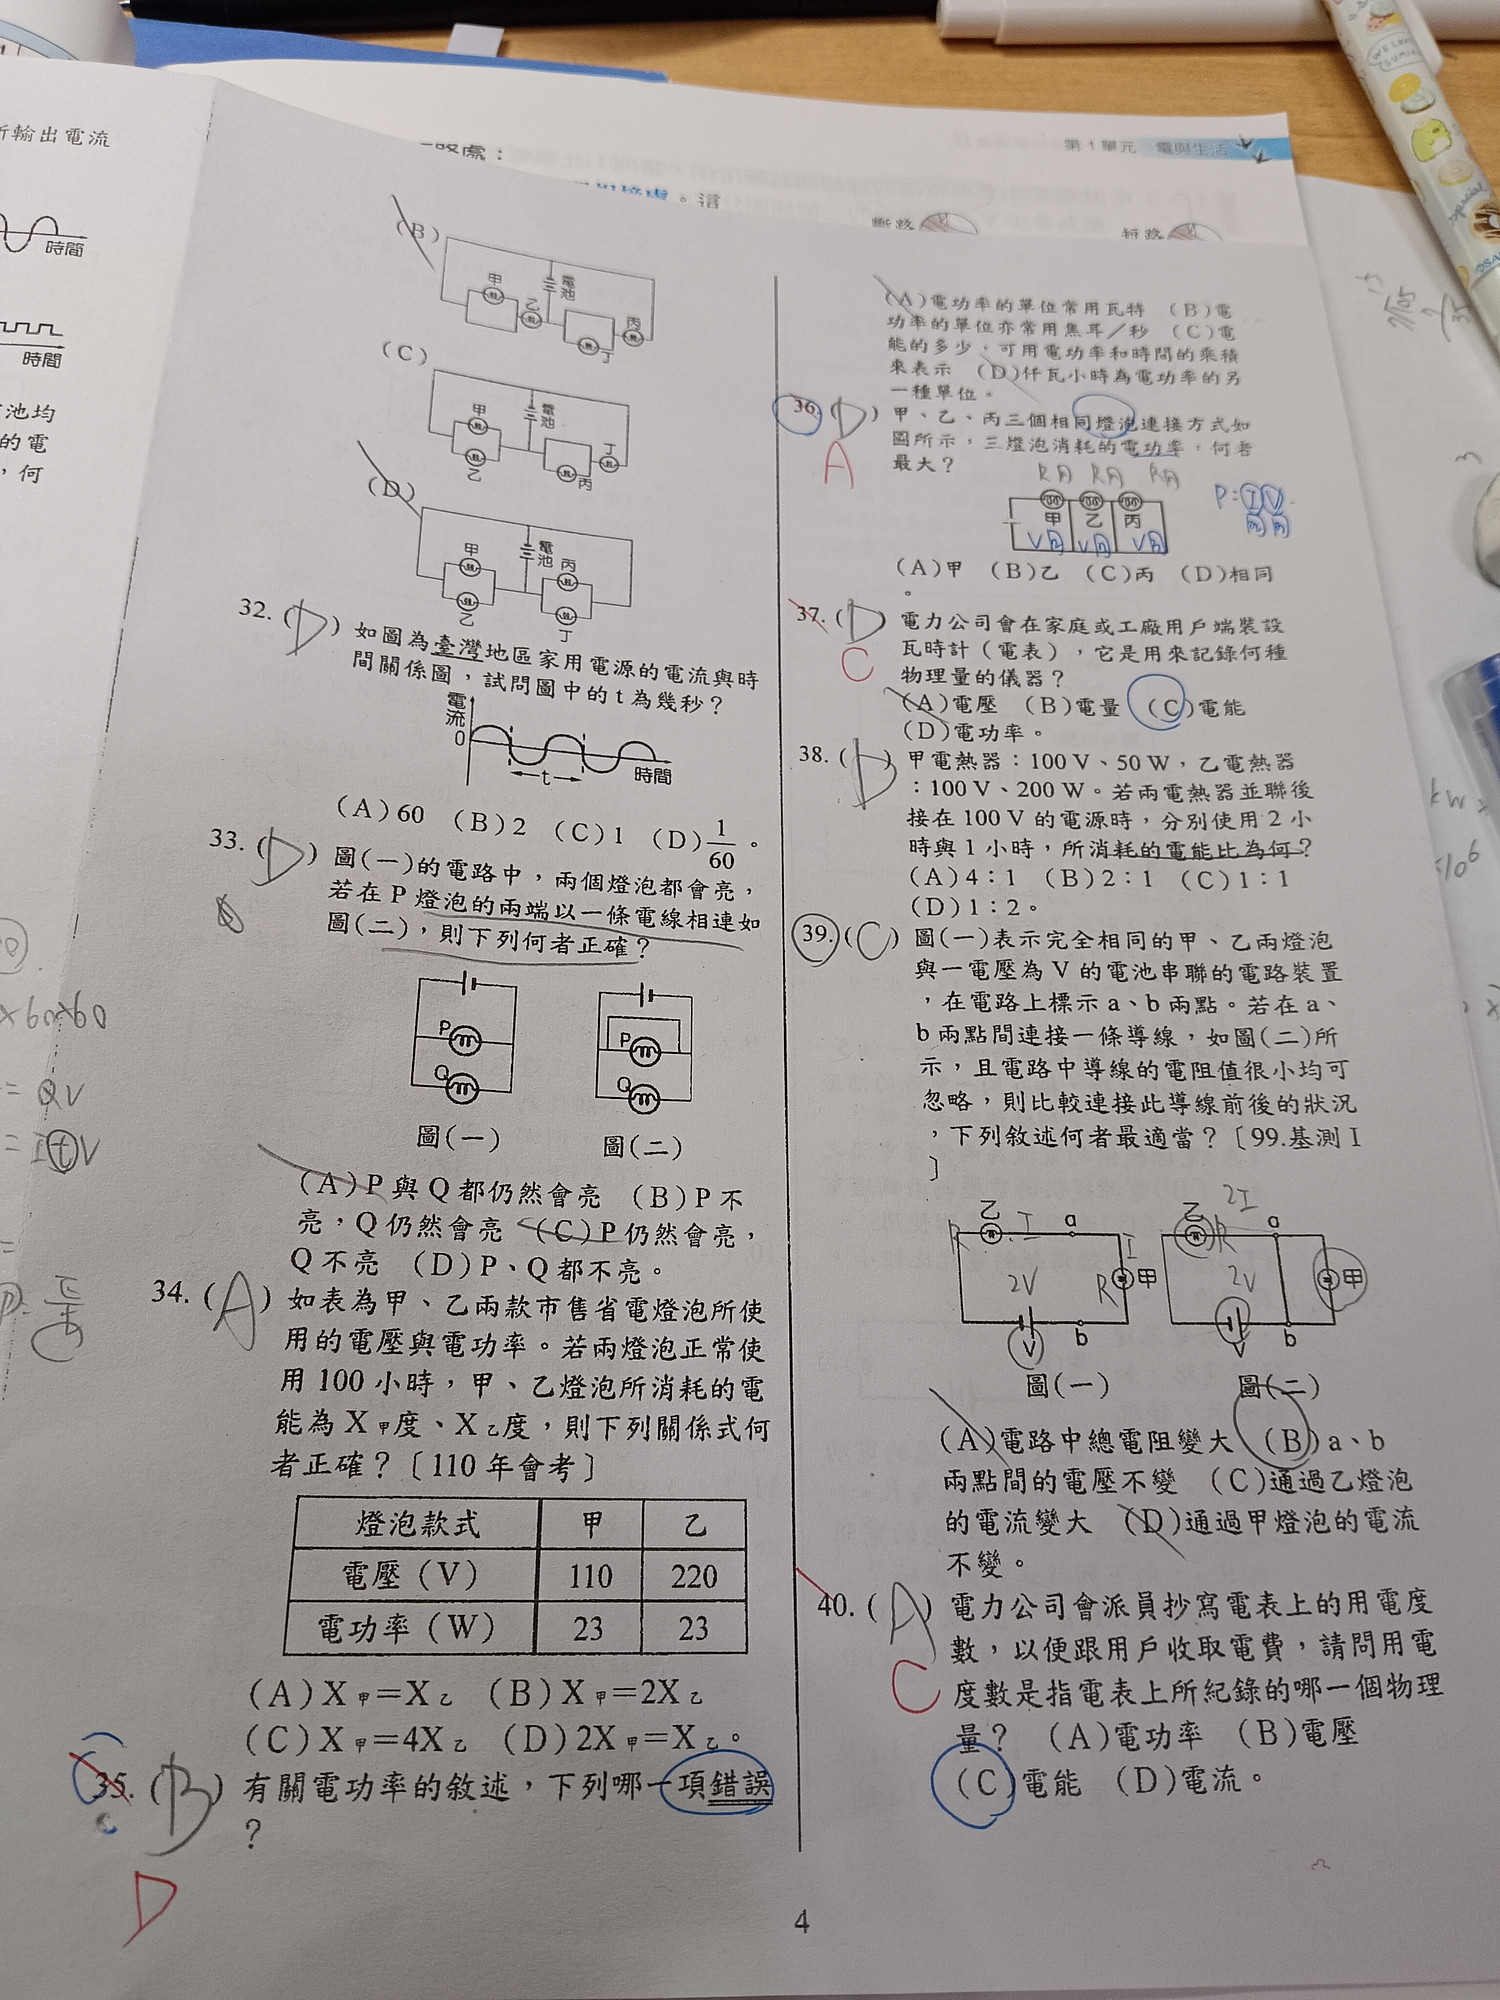 所輸出電流
時間
時間
池均
的電
，何
第1單元 電與生活
斷路
短路
(B)
甲
乙
電池
丙
丁
(C)
甲
電池
乙
丁
丙
(D)
甲
電池
丙
乙
丁
32. (D) 如圖為臺灣地區家用電源的電流與時
間關係圖，試問圖中的t為幾秒？
電流
0
t
時間
(A)60 (B)2 (C)1 (D)1/60。
33. (D) 圖(一)的電路中，兩個燈泡都會亮，
若在P燈泡的兩端以一條電線相連如
圖(二)，則下列何者正確？
P
Q
P
Q
圖(一) 圖(二)
(A)P與Q都仍然會亮 (B)P不
亮，Q仍然會亮 (C)P仍然會亮，
Q不亮 (D)P、Q都不亮。
34. (A) 如表為甲、乙兩款市售省電燈泡所使
用的電壓與電功率。若兩燈泡正常使
用100小時，甲、乙燈泡所消耗的電
能為X甲度、X乙度，則下列關係式何
者正確？〔110年會考〕
燈泡款式 甲 乙
電壓(V) 110 220
電功率(W) 23 23
(A)X甲＝X乙 (B)X甲＝2X乙
(C)X甲＝4X乙 (D)2X甲＝X乙。
35. (B) 有關電功率的敘述，下列哪一項錯誤
？
D
(A)電功率的單位常用瓦特 (B)電
功率的單位亦常用焦耳／秒 (C)電
能的多少，可用電功率和時間的乘積
來表示 (D)仟瓦小時為電功率的另
一種單位。
36. (D) 甲、乙、丙三個相同燈泡連接方式如
圖所示，三燈泡消耗的電功率，何者
最大？
A
R同 R同 R同
甲 乙 丙
V同 V同 V同
P=IV
同同
(A)甲 (B)乙 (C)丙 (D)相同
。
37. (D) 電力公司會在家庭或工廠用戶端裝設
瓦時計（電表），它是用來記錄何種
物理量的儀器？
C
(A)電壓 (B)電量 (C)電能
(D)電功率。
38. (D) 甲電熱器：100 V、50 W，乙電熱器
：100 V、200 W。若兩電熱器並聯後
接在100 V的電源時，分別使用2小
時與1小時，所消耗的電能比為何？
(A)4：1 (B)2：1 (C)1：1
(D)1：2。
39. (C) 圖(一)表示完全相同的甲、乙兩燈泡
與一電壓為V的電池串聯的電路裝置
，在電路上標示a、b兩點。若在a、
b兩點間連接一條導線，如圖(二)所
示，且電路中導線的電阻值很小均可
忽略，則比較連接此導線前後的狀況
，下列敘述何者最適當？〔99.基測I
〕
R 乙 I a I
2V R 甲
V b
2I
乙 R a
2V 甲
V b
圖(一) 圖(二)
(A)電路中總電阻變大 (B)a、b
兩點間的電壓不變 (C)通過乙燈泡
的電流變大 (D)通過甲燈泡的電流
不變。
40. (A) 電力公司會派員抄寫電表上的用電度
數，以便跟用戶收取電費，請問用電
度數是指電表上所紀錄的哪一個物理
量？ (A)電功率 (B)電壓
(C)電能 (D)電流。
C
x60x60
= QV
= ItV
4